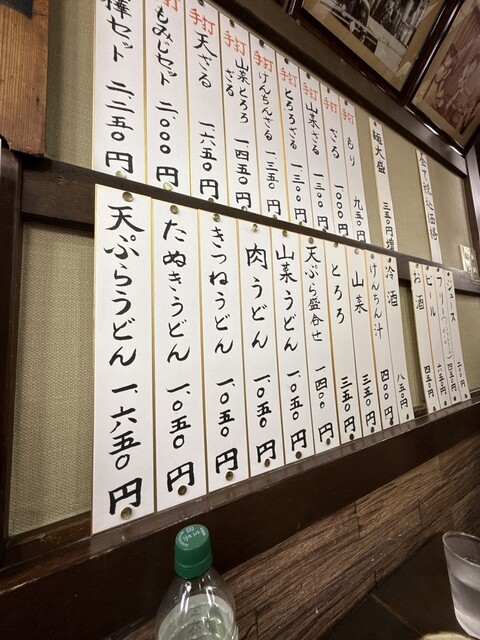 全て税込価格
極大盛 三五〇円増
手打 もり 九五〇円
手打 ざる 一、〇〇〇円
手打 山菜ざる 一、三〇〇円
手打 とろろざる 一、三〇〇円
手打 けんちんざる 一、三五〇円
手打 山菜とろろざる 一、四五〇円
手打 天ざる 一、六五〇円
手打 もみじセット 二、〇〇〇円
セット 二、二五〇円
ジュース
ビール
お酒 四五〇円
冷酒 八五〇
けんちん汁 四〇〇円
山菜 三五〇円
とろろ 三五〇円
天ぷら盛合せ 一、四〇〇円
山菜うどん 一、〇五〇円
肉うどん 一、〇五〇円
きつねうどん 一、〇五〇円
たぬきうどん 一、〇五〇円
天ぷらうどん 一、六五〇円